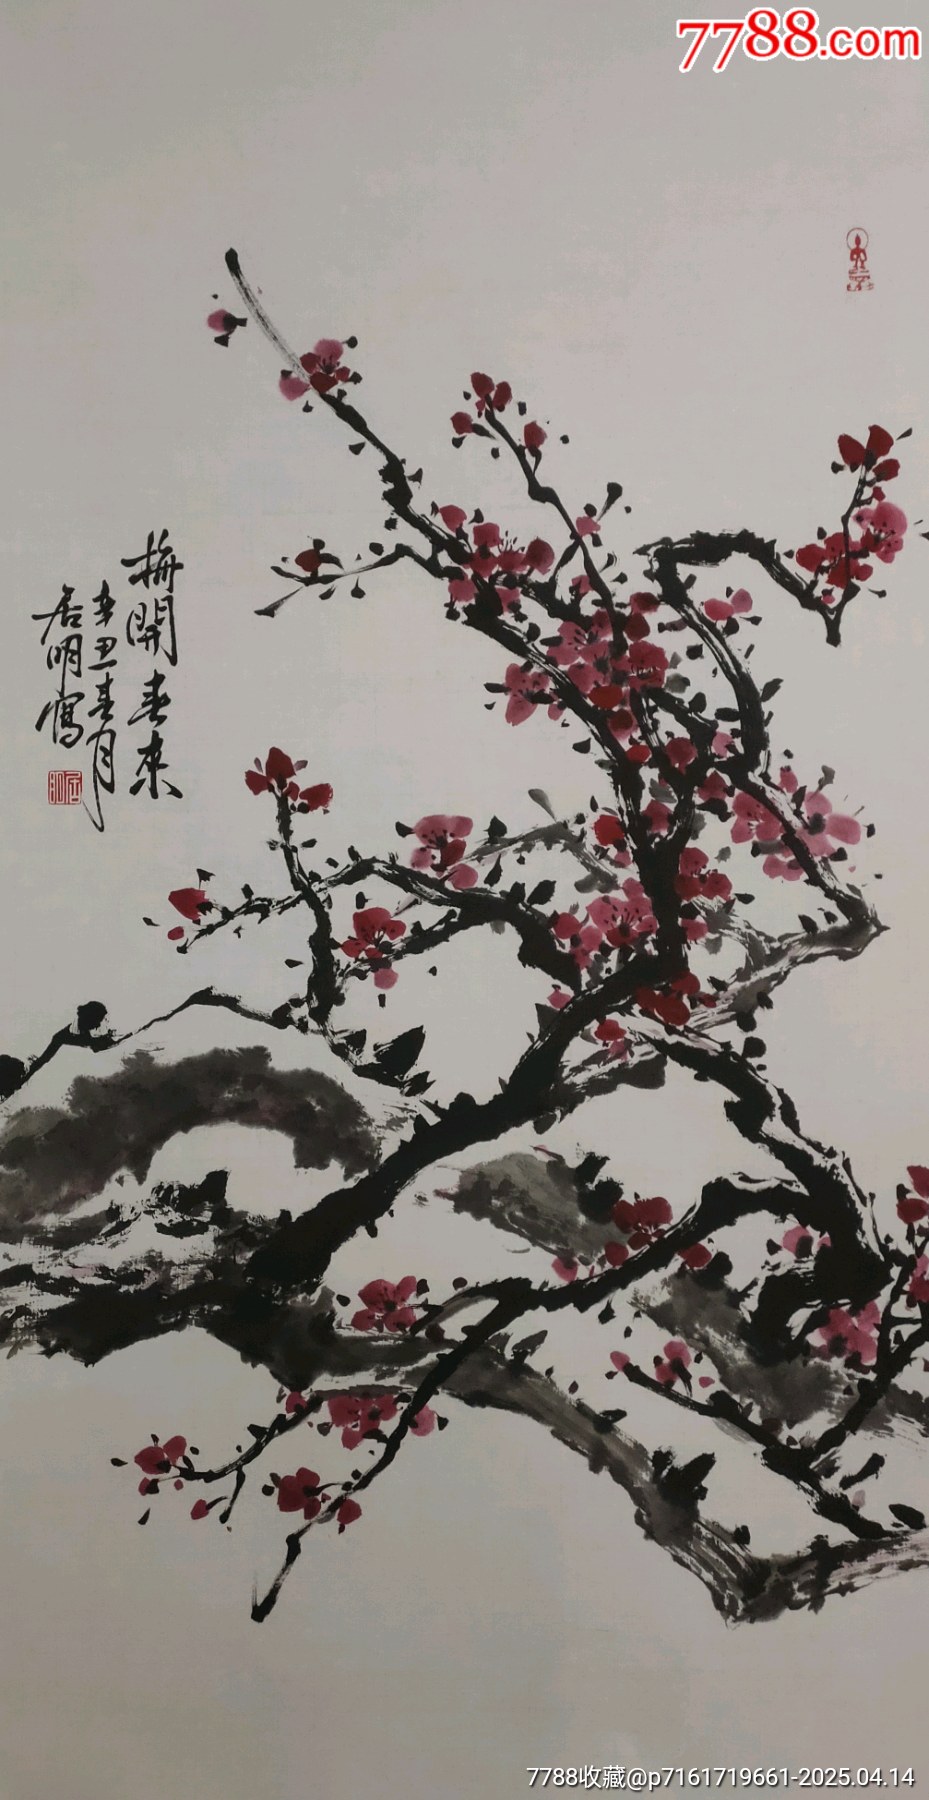 7788.com
梅開春來
辛丑春月
居明寫
居明
7788收藏@p7161719661-2025.04.14